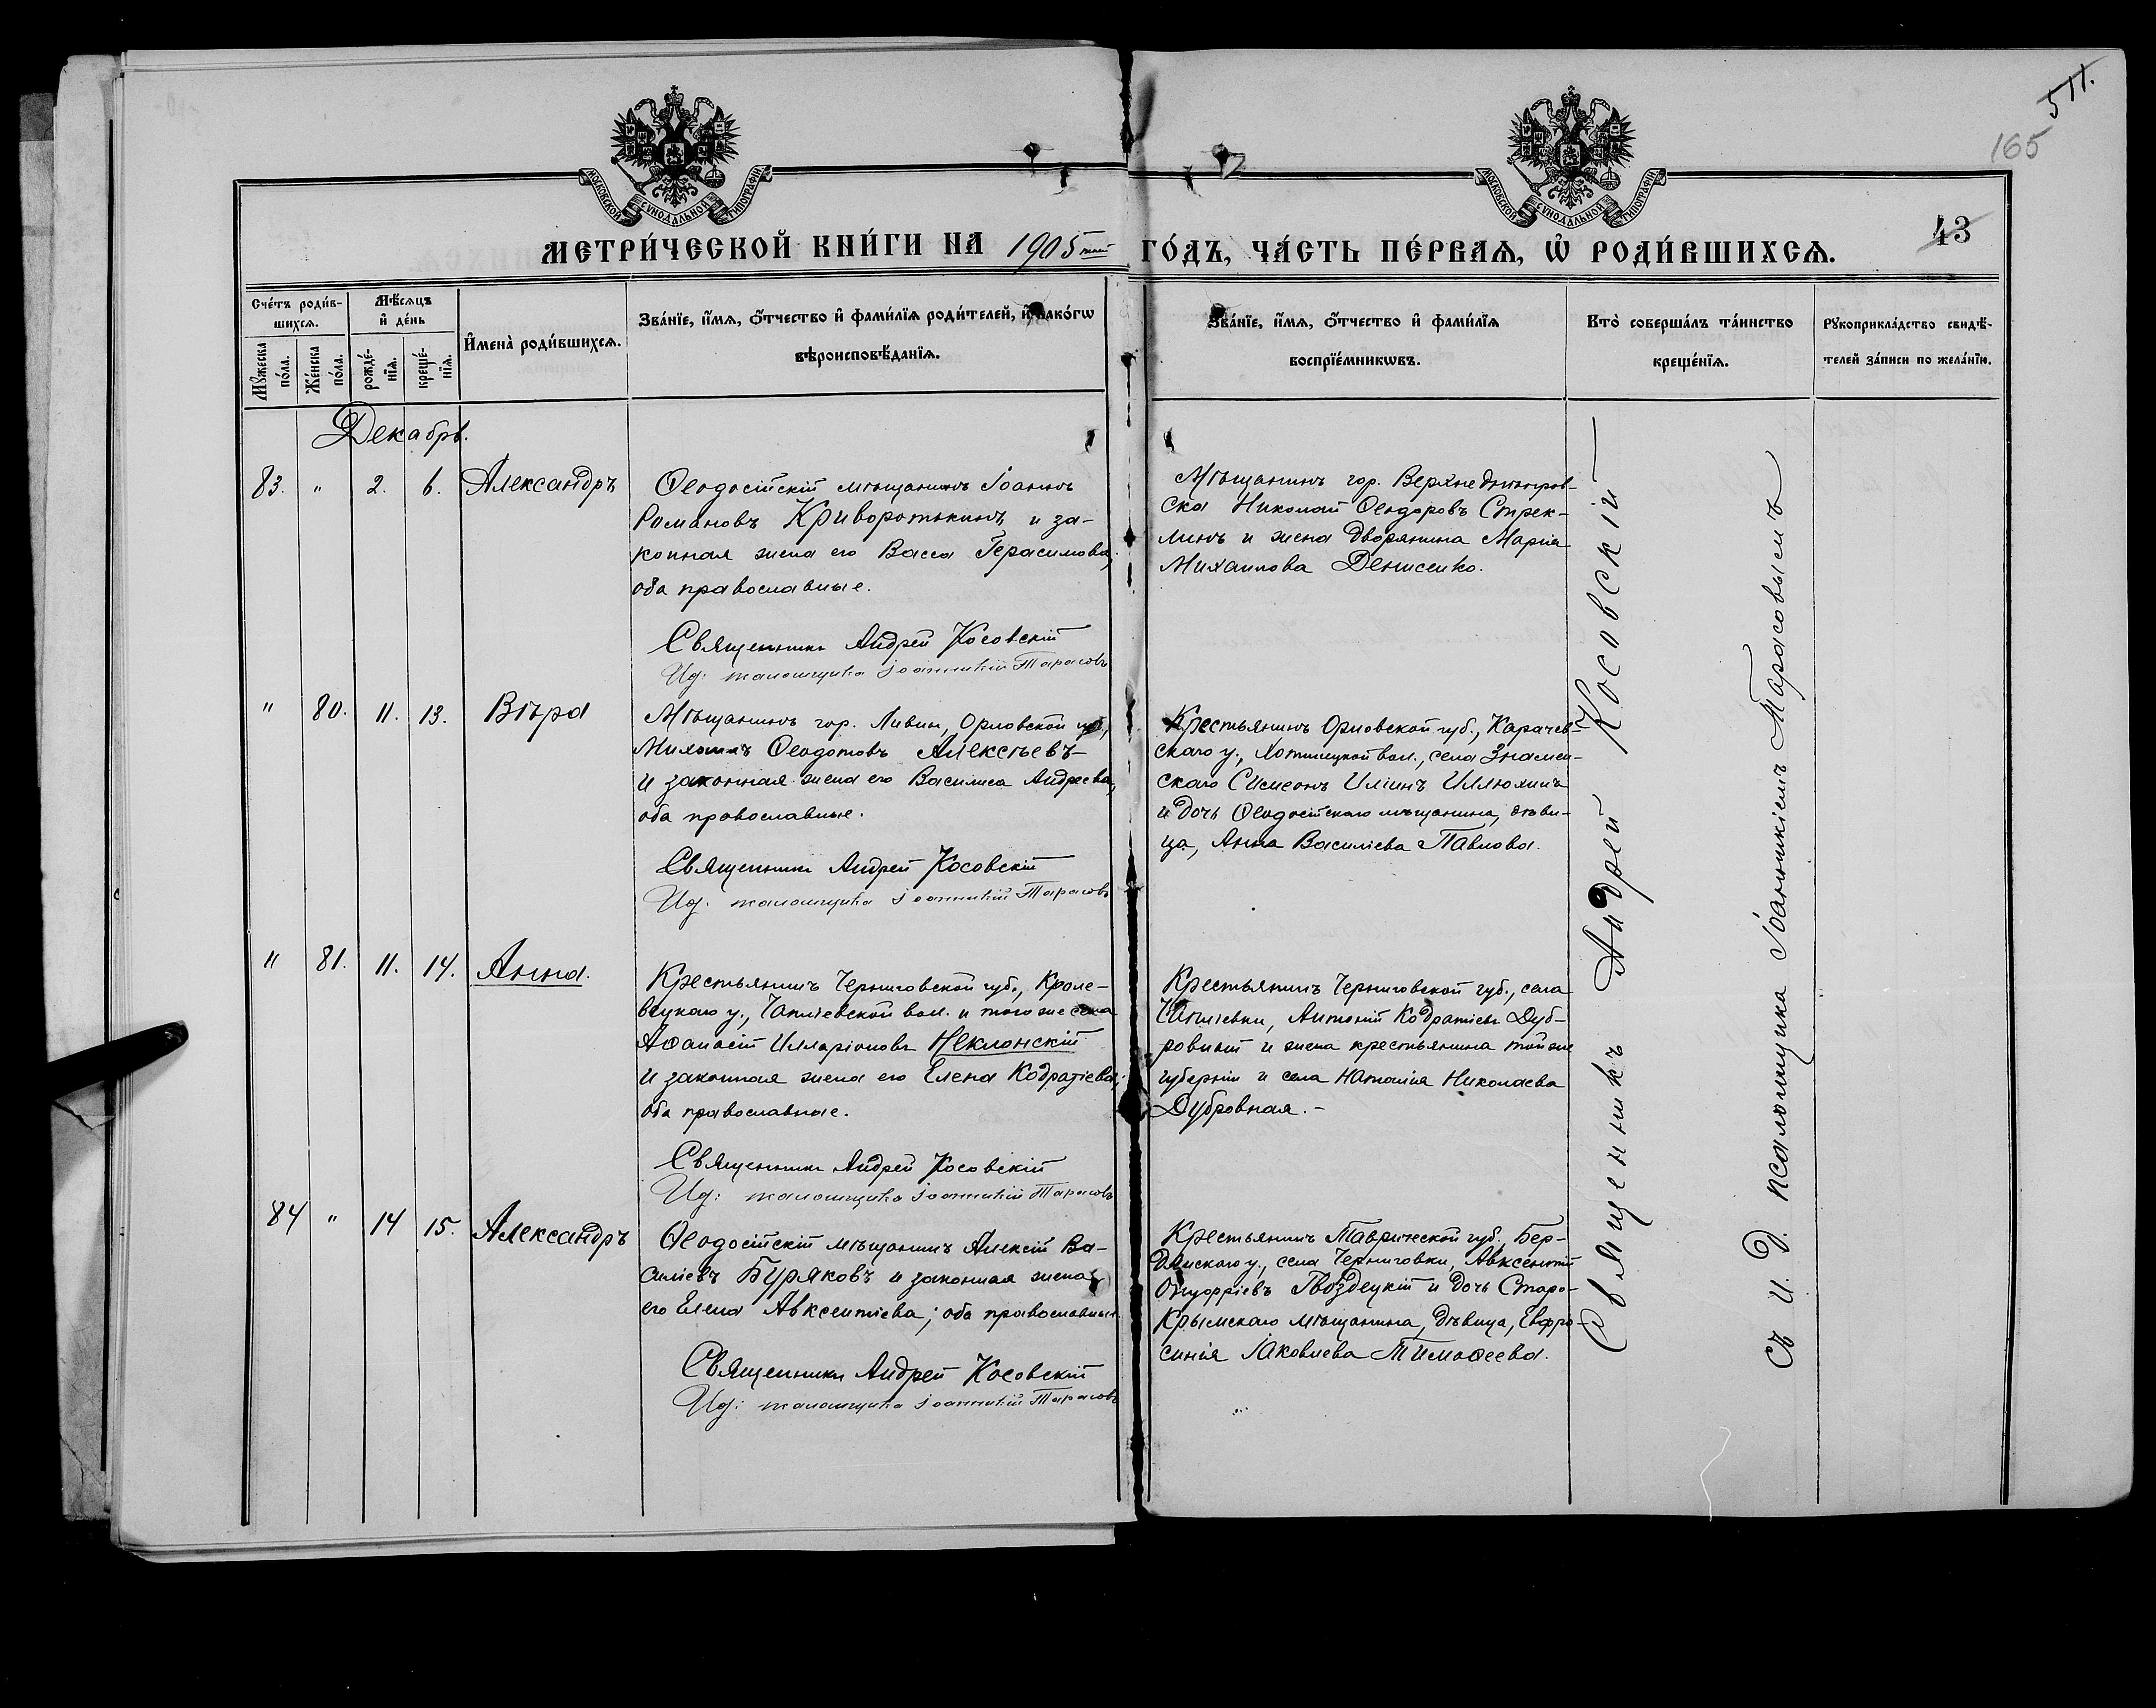 511.
165
МОСКОВСКОЙ СѴНОДАЛЬНОЙ ТИПОГРАФІИ
МОСКОВСКОЙ СѴНОДАЛЬНОЙ ТИПОГРАФІИ
43
МЕТРИ́ЧЕСКОЙ КНИ́ГИ НА 1905 ГО́ДЪ, ЧА́СТЬ ПЕ́РВАѦ, Ѽ РОДИ́ВШИХСѦ.
Сче́тъ роди́в-
шихсѧ.
Мѣ́сѧцъ
и҆ де́нь
Мꙋ́жеска
по́ла.
Же́нска
по́ла.
рожде́-
нїѧ.
креще́-
нїѧ.
И҆мена̀ роди́вшихсѧ.
Зва́нїе, и҆́мѧ, ѻ҆́тчество и҆ фами́лїѧ роди́телей, и҆ како́гѡ
вѣроисповѣ́данїѧ.
Зва́нїе, и҆́мѧ, ѻ҆́тчество и҆ фами́лїѧ
воспрїе́мникѡвъ.
Кто̀ соверша́лъ та́инство
креще́нїѧ.
Рꙋкоприкла́дство свидѣ́-
телей за́писи по жела́нїю.
Декабрь.
83. " 2. 6. Александръ
Ѳеодосійскій мѣщанинъ Іоаннъ
Романовъ Криворотькинъ и за-
конная жена его Васса Герасимова,
оба православные.
Священникъ Андрей Косовскій
И.д. псаломщика Іоанникій Тарасовъ
Мѣщанинъ гор. Верхнеднѣпров-
ска Николай Ѳеодоровъ Стрек-
линъ и жена дворянина Марія
Михаилова Денисенко.
" 80. 11. 13. Вѣра
Мѣщанинъ гор. Ливны, Орловской губ.,
Михаилъ Ѳеодотовъ Алексѣевъ
и законная жена его Василиса Андреева,
оба православные.
Священникъ Андрей Косовскій
И.д. псаломщика Іоанникій Тарасовъ
Крестьянинъ Орловской губ., Карачев-
скаго у., вол., села Знамен-
скаго Симеонъ Иліинъ Иллюхинъ
и дочь Ѳеодосійскаго мѣщанина, дѣви-
ца, Анна Василіева Павлова.
" 81. 11. 14. Анна.
Крестьянинъ Черниговской губ., Кроле-
вецкаго у., Чапліевской вол. и того же села
Аѳанасій Илларіоновъ Неклонскій
и законная жена его Елена Кодратіева;
оба православные.
Священникъ Андрей Косовскій
И.д: псаломщика Іоанникій Тарасовъ
Крестьянинъ Черниговской губ., села
Чапліевки, Антоній Кодратіевъ Дуб-
ровный и жена крестьянина той же
губерніи и села Наталія Николаева
Дубровная.-
84 " 14 15. Александръ
Ѳеодосійскій мѣщанинъ Алексій Ва-
силіевъ Буряковъ и законная жена
его Елена Авксентіева; оба православные.
Священникъ Андрей Косовскій
И.д: псаломщика Іоанникій Тарасовъ
Крестьянинъ Таврической губ., Бер-
дянскаго у., села Черниговки, Авксентій
Гвоздецкій и дочь Старо-
Крымскаго мѣщанина, дѣвица, Евфро-
синія Іаковлева Тимоѳеева.
Священникъ Андрей Косовскій
съ И. Д. псаломщика Іоанникіемъ Тарасовымъ